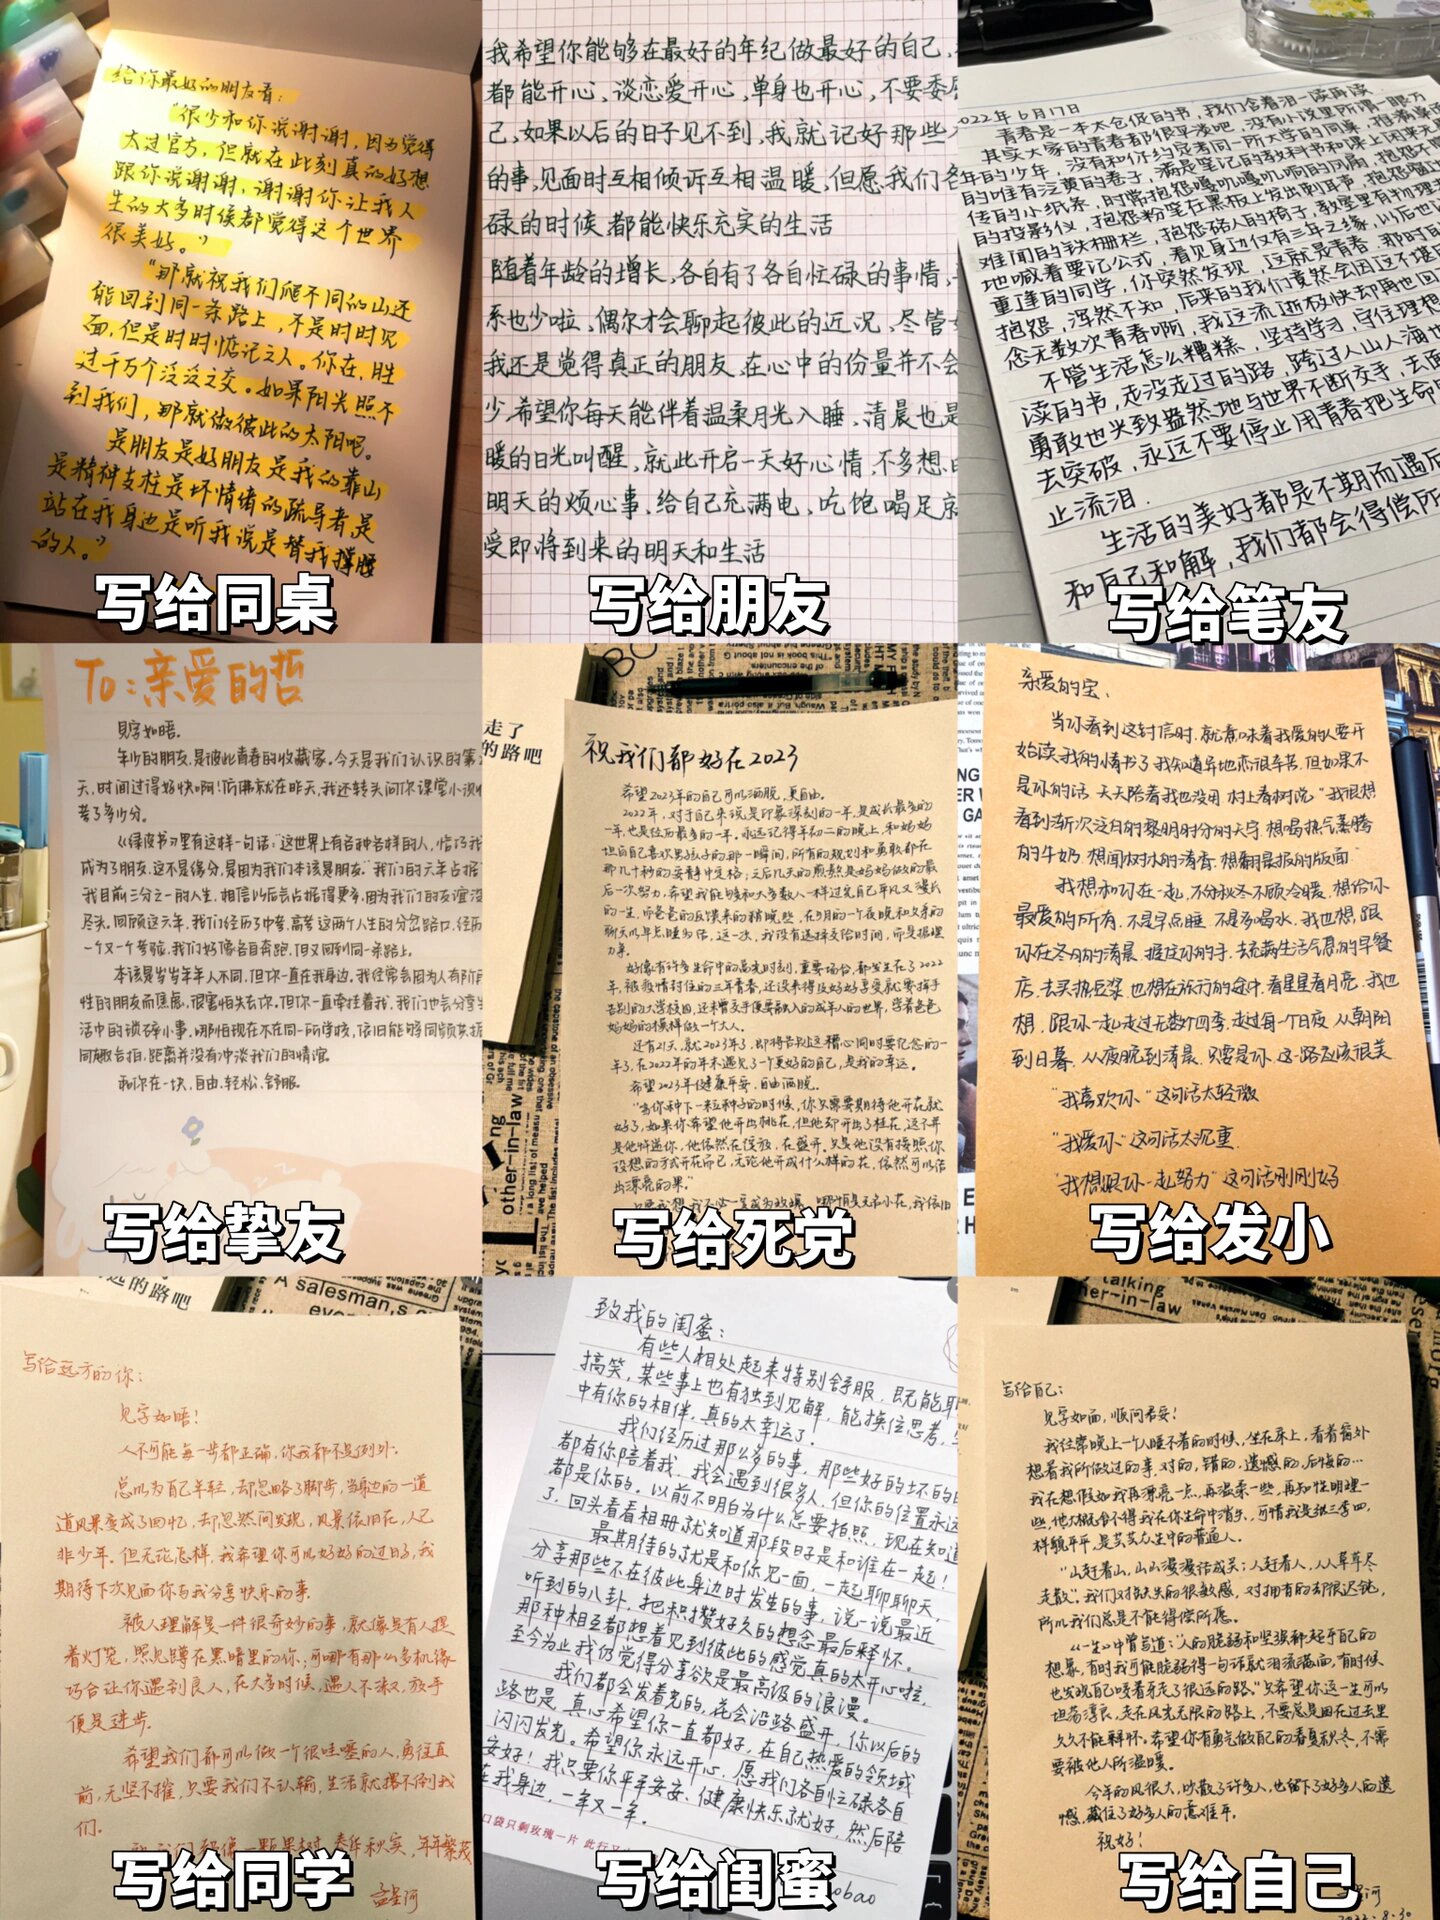 给你最好的朋友看:
“很少和你说谢谢,因为觉得
太过官方,但就在此刻真的好想
跟你说谢谢,谢谢你让我人
生的大多时候都觉得这个世界
很美好。”
“那就祝我们爬不同的山还
能回到同一条路上,不是时时见
面,但是时时惦记之人。你在,胜
过千万个泛泛之交。如果阳光照不
到我们,那就做彼此的太阳吧。
是朋友是好朋友是我的靠山
是精神支柱是坏情绪的疏导者是
站在我身边是听我说是替我撑腰
的人。”
写给同桌
我希望你能够在最好的年纪做最好的自己,
都能开心、谈恋爱开心,单身也开心,不要委
己,如果以后的日子见不到,我就记好那些
的事,见面时互相倾诉互相温暖,但愿我们各
碌的时候都能快乐充实的生活
随着年龄的增长,各自有了各自忙碌的事情,
系也少啦,偶尔才会聊起彼此的近况,尽管
我还是觉得真正的朋友,在心中的份量并不会
少,希望你每天能伴着温柔月光入睡,清晨也是
暖的日光叫醒,就此开启一天好心情,不多想
明天的烦心事,给自己充满电,吃饱喝足
受即将到来的明天和生活
写给朋友
2022年6月17日
青春是一本太仓促的书,我们含着泪一读再读
其实大家的青春都很平淡吧,没有小说里所谓一眼万
年的少年,没有和你约定考同一所大学的同桌,
的唯有泛黄的卷子,满是笔记的教科书和课上困
传的小纸条,时常抱怨嘎叽嘎叽响的风扇,抱怨不
的投影仪,抱怨粉笔在黑板上发出刺耳声,抱怨窗
难闻的铁栅栏,抱怨硌人的椅子,教室里有物理
地喊着要记公式,看见身边仅有三年之缘,以后也
重逢的同学,你突然发现,这就是青春,那时的
抱怨,浑然不知,后来的我们竟然会因这不堪
念无数次青春啊,我这流逝极快却再也回
不管生活怎么糟糕,坚持学习,守住理想
读的书,走没走过的路,跨过人山人海
勇敢也兴致盎然地与世界不断交手,去
去突破,永远不要停止用青春把生命
止流泪.
生活的美好都是不期而遇
和自己和解,我们都会得偿所
写给笔友
To:亲爱的哲
见字如晤。
年少的朋友,是彼此青春的收藏家。今天是我们认识的第
天,时间过得好快啊!仿佛就在昨天,我还转头问你课堂小测
考了多少分。
《绿皮书》里有这样一句话:“这世界上有各种各样的人,恰巧我
成为了朋友,这不是缘分,是因为我们本该是朋友”我们的六年占据
我目前三分之一的人生,相信以后会占据得更多,因为我们的友谊没
尽头。回顾这六年,我们经历了中考,高考这两个人生的分岔路口,经历
一个又一个考验,我们好像各自奔跑,但又回到同一条路上。
本该是岁岁年年人不同,但你一直在我身边,我经常会因为人有阶段
性的朋友而焦虑,很害怕失去你。但你一直牵挂着我,我们也会分享
活中的琐碎小事。哪怕现在不在同一所学校,依旧能够同频
同趣合拍,距离并没有冲淡我们的情谊。
和你在一块,自由、轻松、舒服。
写给挚友
走了
的路吧
祝我们都好在2023
希望2023年的自己可以洒脱,更自由。
2022年,对于自己来说,是印象深刻的一年,是成长最多的
一年,也是经历最多的一年。永远记得年初二的晚上,和妈妈
坦白自己喜欢男孩子的那一瞬间,所有的规划和勇敢都在
那几十秒的安静中定格;之后几天的煎熬是妈妈做的最
后一次努力,希望我能够和大多数人一样过完自己平凡又漫长
的一生,而爸爸的反馈来的稍晚些,在9月的一个夜晚和父亲的
聊天以早点睡为结,这一次,我没有选择交给时间,而是据理
力争。
好像有许多生命中的高光时刻,重要场合,都发生在了2022
年,被疫情封住的三年青春,还没来得及好好享受就要挥手
告别的大学校园,还未曾交手便要融入的成年人的世界,学着爸爸
妈妈的模样做一个大人。
还有21天,就2023年了,即将告别这糟心同时要纪念的一
年了,在2022年的年末遇见了一个更好的自己,是我的幸运。
希望2023年健康平安,自由洒脱。
“当你种下一粒种子的时候,你只需要期待他开花就
好了,如果你希望他开出桃花,但他却开出了桂花,这不算
是他忤逆你,他依然在绽放,在盛开,只是他没有按照你
设想的方式开花而已,无论他开成什么样的花,依然可以结
出漂亮的果。”
写给死党
亲爱的宝、
当你看到这封信时,就意味着我爱的人要开
始读我的情书了,我知道异地恋很辛苦,但如果不
是你的话 天天陪着我也没用 村上春树说“我很想
看到渐次泛白的黎明时分的天宇,想喝热气蒸腾
的牛奶,想闻树木的清香,想翻晨报的版面”
我想和你在一起,不分秋冬不顾冷暖,想给你
最爱的所有,不是早点睡,不是多喝水,我也想,跟
你在冬日的清晨,握住你的手,去充满生活气息的早餐
店,去买热豆浆 也想在旅行的途中,看星星看月亮,我也
想,跟你一起走过无数个四季,走过每一个日夜,从朝阳
到日暮,从夜晚到清晨,只要是你,这一路应该很美
“我喜欢你”这句话太轻微
“我爱你”这句话太沉重
“我想跟你一起努力”这句话刚刚好
写给发小
的路吧
A salesman,s
写给远方的你:
见字如晤!
人不可能每一步都正确,你我都不是例外;
总以为自己年轻,却忽略了脚步,当身边的一道
道风景变成了回忆,却忽然间发现,风景依旧在,人已
非少年。但无论怎样,我希望你可以好好的过日子,我
期待下次见面你与我分享快乐的事。
被人理解是一件很奇妙的事,就像是有人提
着灯笼,照见蹲在黑暗里的你;可哪有那么多机缘
巧合让你遇到良人,在大多时候,遇人不淑,放手
便是进步。
希望我们都可以做一个很哇噻的人,勇往直
前,无坚不摧,只要我们不认输,生活就撂不倒我
们。
春华秋实,年年繁茂
孟星河
写给同学
致我的闺蜜:
有些人相处起来特别舒服,既能
搞笑,某些事上也有独到见解,能换位思考,
中有你的相伴,真的太幸运了.
我们经历过那么多的事,那些好的坏的
都有你陪着我.我会遇到很多人,但你的位置永远
都是你的.以前不明白为什么总要拍照,现在知道
了,回头看看相册就知道那段日子是和谁在一起!
最期待的就是和你见一面,一起聊聊天,
分享那些不在彼此身边时发生的事,说一说最近
听到的八卦,把积攒好久的想念最后释怀。
那种相互都想着见到彼此的感觉真的太开心啦,
至今为止我仍觉得分享欲是最高级的浪漫。
我们都会发着光的,花会沿路盛开,你以后的
路也是,真心希望你一直都好,在自己热爱的领域
闪闪发光。希望你永远开心,愿我们各自忙碌各自
安好!我只要你平平安安、健康快乐就好,然后陪
在我身边,一年又一年。
口袋只剩玫瑰一片 此行又
写给闺蜜
talking
her-in-law
写给自己:
见字如面,顺问君安!
我经常晚上一个人睡不着的时候,坐在床上,看着窗外
想着我所做过的事,对的,错的,遗憾的,后悔的…
我在想假如我再漂亮一点,再温柔一些,再知性明理一
些,他大概舍不得我在你生命中消失,可惜我是张三李四,
样貌平平,是芸芸众生中的普通人。
“山赶着山,山山漫漫话成关;人赶着人,人人草草尽
走散”。我们对缺失的很敏感,对拥有的却很迟钝,
所以我们总是不能得偿所愿。
《一生》中曾写道:“人的脆弱和坚强都超乎自己的
想象,有时我可能脆弱得一句话就泪流满面,有时候
也发现自己咬着牙走了很远的路。”只希望你这一生可以
坦荡淳良,走在风光无限的路上,不要总是困在过去里
久久不能释怀。希望你有勇气做自己的春夏秋冬,不需
要被他人所温暖。
今年的风很大,吹散了许多人,也留下了好多人的遗
憾,藏住了好多人的意难平。
祝好!
2022.8.30
写给自己